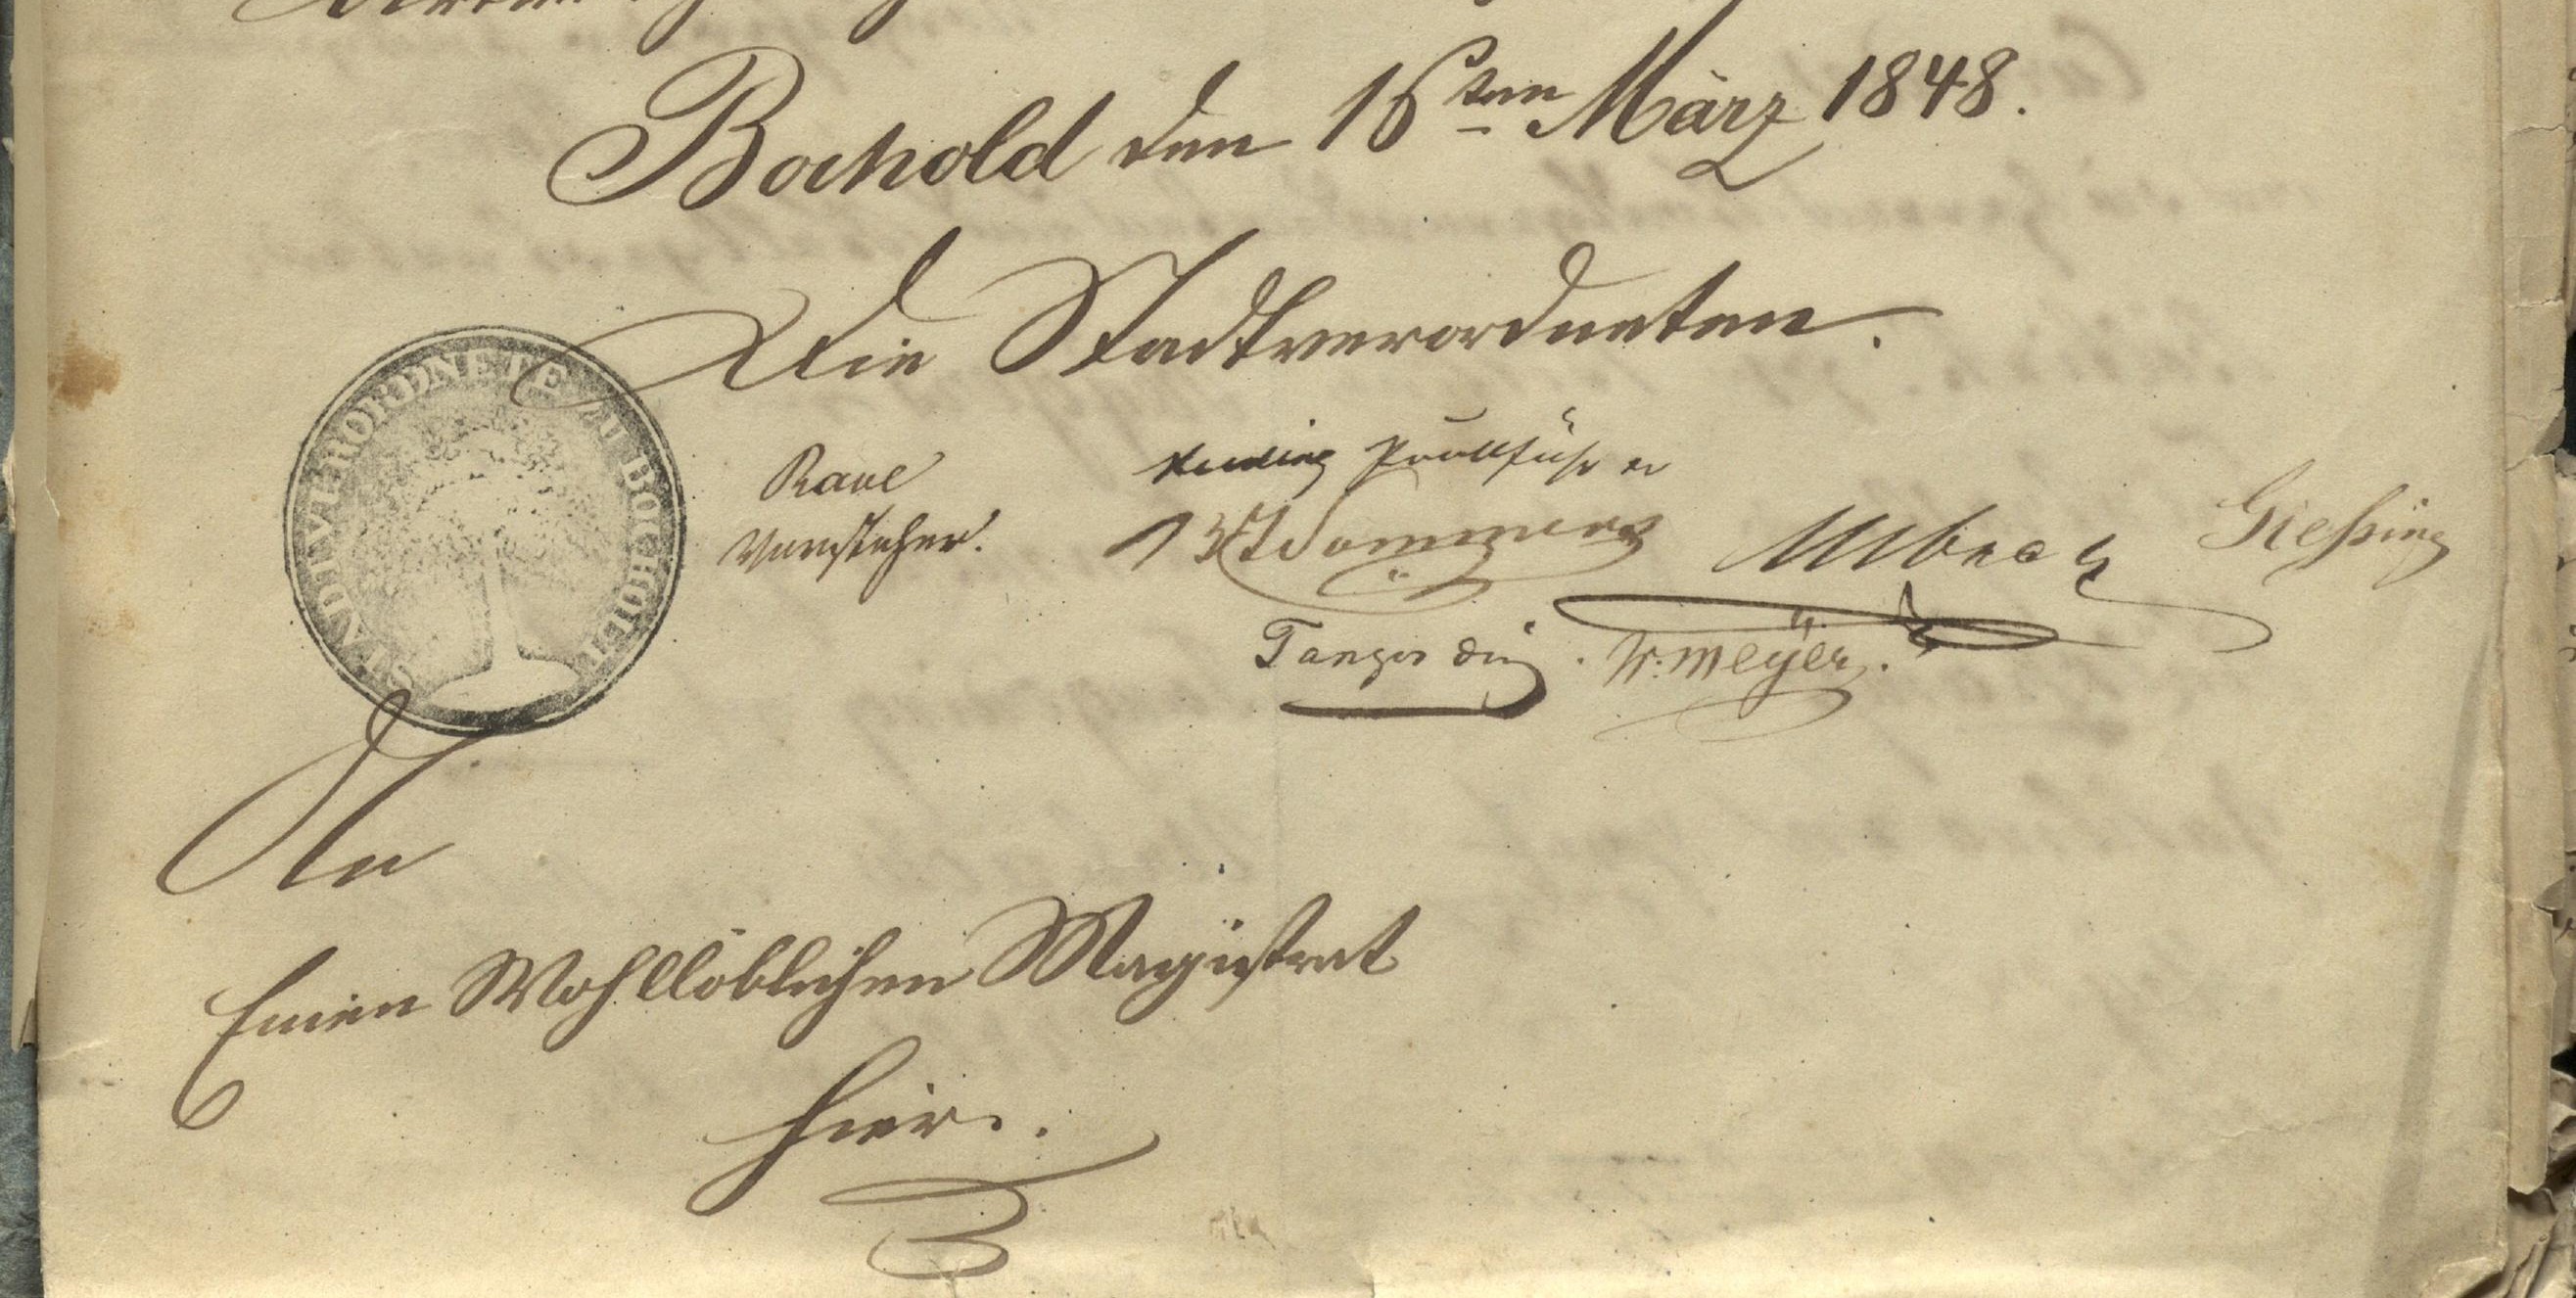 Bocholt den 16ten März 1848.
Die Stadtverordneten.
STADTVERORDNETE ZU BOCHOLT
Raue
Vorsteher.
Protollführer
Gießing
Tangerding. W. Meÿer.
An
Einen Wohllöblichen Magistrat
hier.